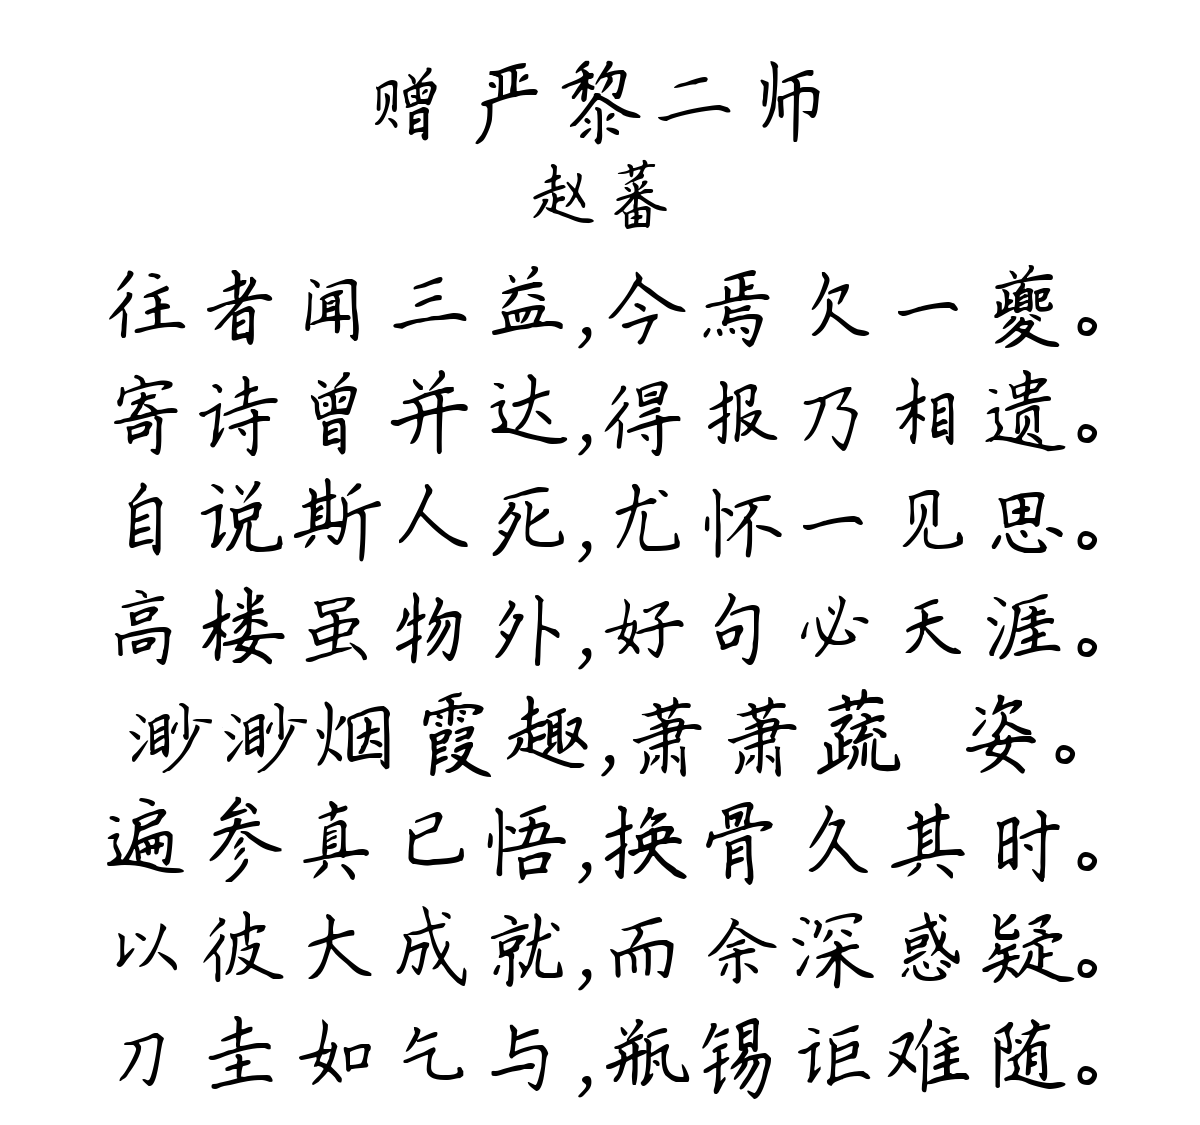 赠严黎二师
赵蕃
往者闻三益,今焉欠一夔。
寄诗曾并达,得报乃相遗。
自说斯人死,尤怀一见思。
高楼虽物外,好句必天涯。
渺渺烟霞趣,萧萧蔬 姿。
遍参真已悟,换骨久其时。
以彼大成就,而余深惑疑。
刀圭如乞与,瓶锡讵难随。